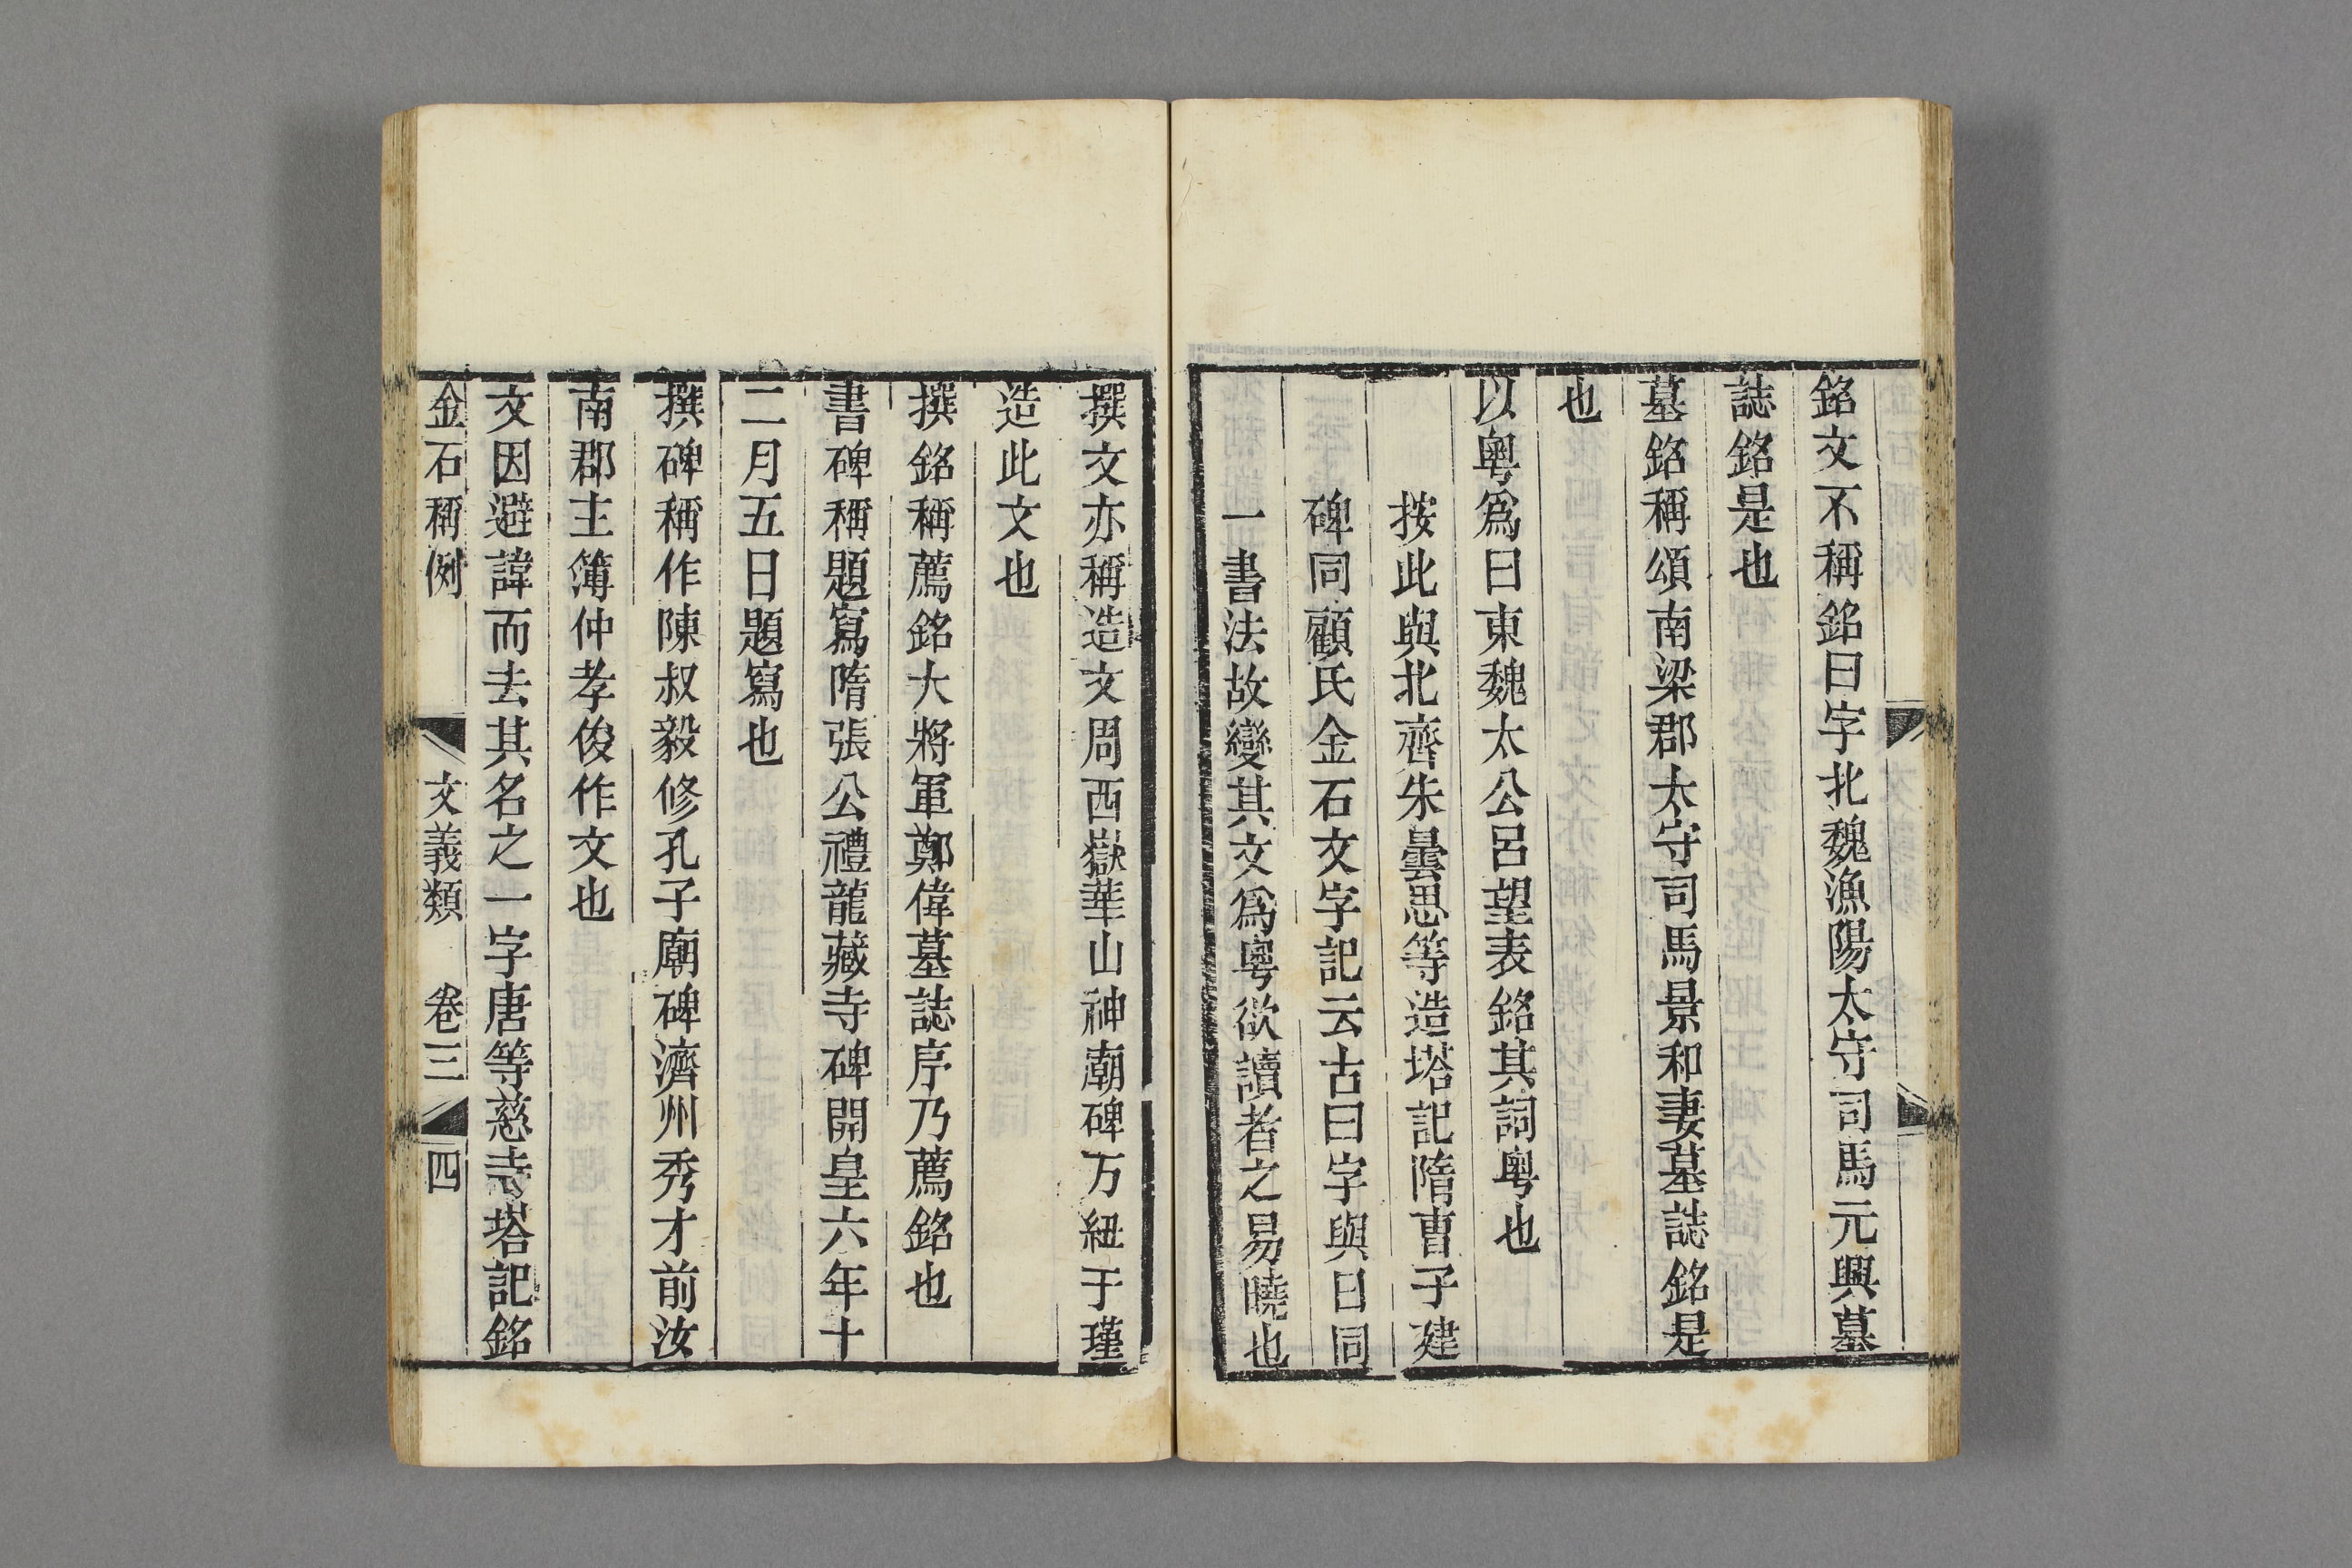 銘文不稱銘曰字北魏漁陽太守司馬元興墓
誌銘是也
墓銘稱頌南梁郡太守司馬景和妻墓誌銘是
也
以粵爲曰東魏太公呂望表銘其詞粵也
按此與北齊朱曇思等造塔記隋曹子建
碑同顧氏金石文字記云古曰字與日同
一書法故變其文爲粵欲讀者之易曉也
撰文亦稱造文周西嶽華山神廟碑万紐于瑾
造此文也
撰銘稱薦銘大將軍鄭偉墓誌序乃薦銘也
書碑稱題寫隋張公禮龍藏寺碑開皇六年十
二月五日題寫也
撰碑稱作陳叔毅修孔子廟碑濟州秀才前汝
南郡主簿仲孝俊作文也
文因避諱而去其名之一字唐等慈寺塔記銘
金石稱例 文義類 卷三 四